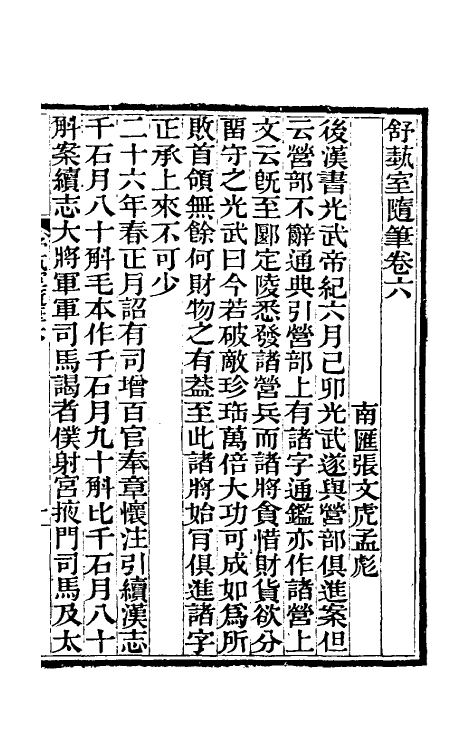 舒蓺室隨筆卷六
南匯張文虎孟彪
後漢書光武帝紀六月己卯光武遂與營部俱進案但
云營部不辭通典引營部上有諸字通鑑亦作諸營上
文云旣至郾定陵悉發諸營兵而諸將貪惜財貨欲分
畱守之光武曰今若破敵珍珤萬倍大功可成如爲所
敗首領無餘何財物之有葢至此諸將始肎俱進諸字
正承上來不可少
二十六年春正月詔有司增百官奉章懷注引續漢志
千石月八十斛毛本作千石月九十斛比千石月八十
斛案續志大將軍軍司馬謁者僕射宮掖門司馬及太